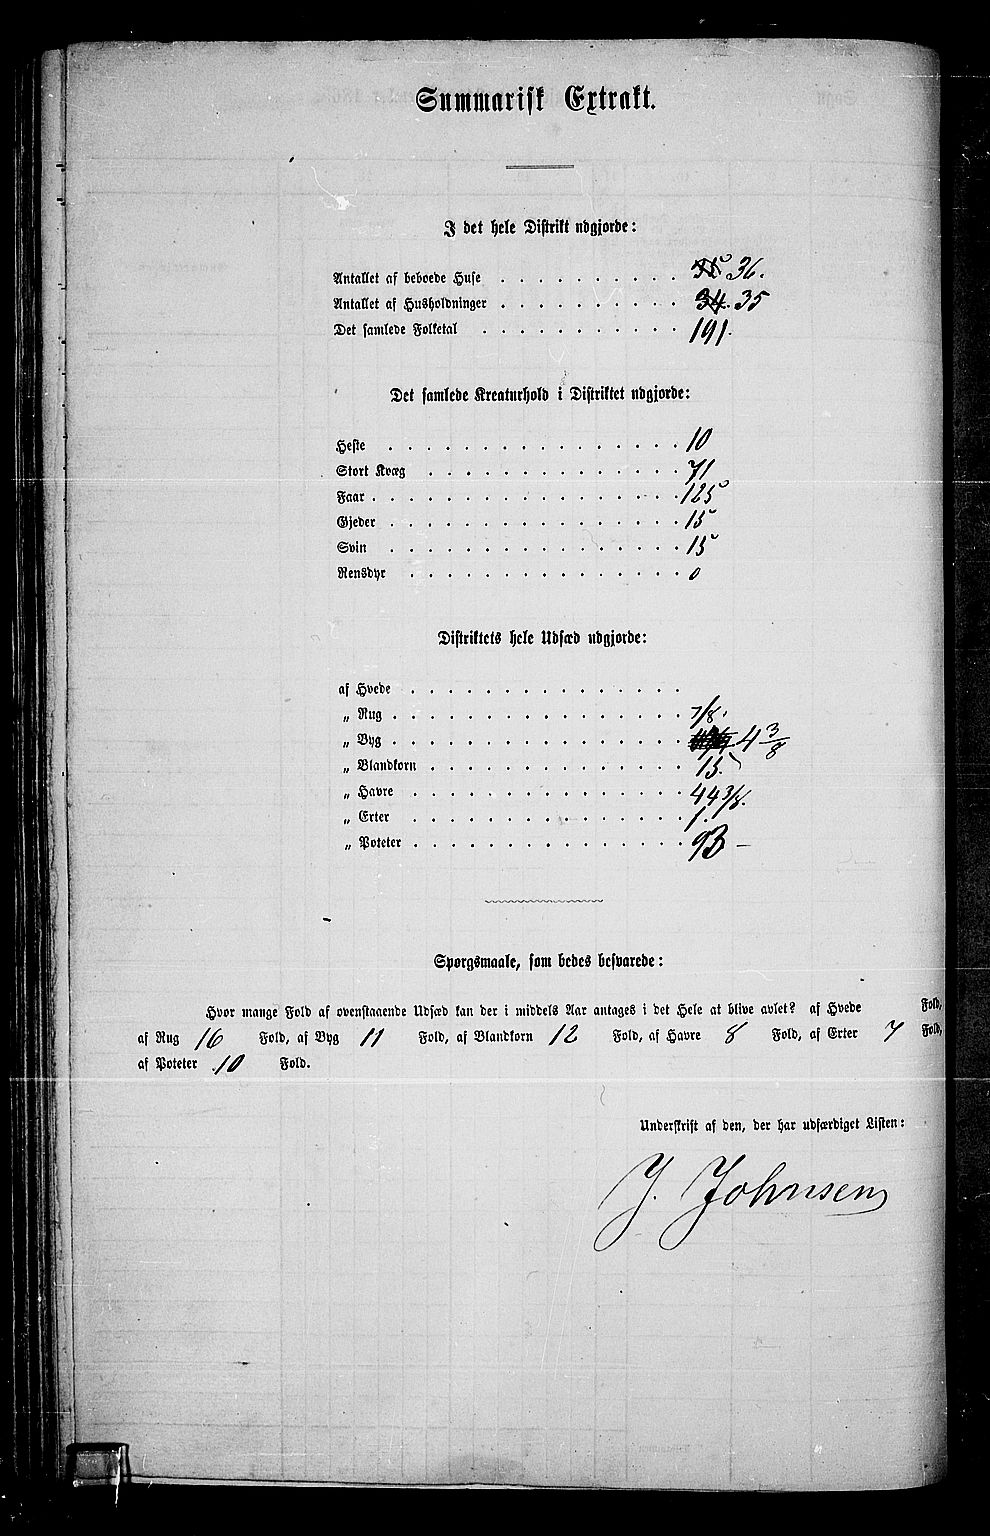 Summarisk Extrakt.
I det hele Distrikt udgjorde:
Antallet af beboede Huse . . . . . . . . . . 35 36.
Antallet af Husholdninger . . . . . . . . . . 34. 35
Det samlede Folketal . . . . . . . . . . . 191.
Det samlede Kreaturhold i Distriktet udgjorde:
Heste . . . . . . . . . . . . . . . . 10
Stort Kvæg . . . . . . . . . . . . . . 71
Faar . . . . . . . . . . . . . . . . . 125
Gjeder . . . . . . . . . . . . . . . . 15
Svin . . . . . . . . . . . . . . . . 15
Rensdyr . . . . . . . . . . . . . . . 0
Distriktets hele Udsæd udgjorde:
af Hvede . . . . . . . . . . . . . . .
„ Rug . . . . . . . . . . . . . . . . 7/8.
„ Byg . . . . . . . . . . . . . . . . 4 3/8
„ Blandkorn . . . . . . . . . . . . . . 15.
„ Havre . . . . . . . . . . . . . . . 44 3/8.
„ Erter . . . . . . . . . . . . . . . 1.
„ Poteter . . . . . . . . . . . . . . . 93 —
Spørgsmaale, som bedes besvarede:
Hvor mange Fold af ovenstaaende Udsæd kan der i middels Aar antages i det Hele at blive avlet? af Hvede Fold,
af Rug 16 Fold, af Byg 11 Fold, af Blandkorn 12 Fold, af Havre 8 Fold, af Erter 7 Fold,
af Poteter 10 Fold.
Underskrift af den, der har udfærdiget Listen:
J. Johnsen